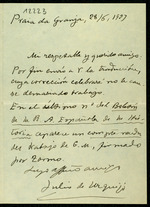 12223
Praia da Granja, 28/5, 1927
Mi respetable y querido amigo:
Por fin envío a V. la traducción,
cuya corrección celebraré no le cau
se demasiado trabajo.
En el último nº del Boletín
de la R. A. Española de la His
toria, aparece un
del trabajo de
por
Suyo affmo amigo,
Julio de Urquijo